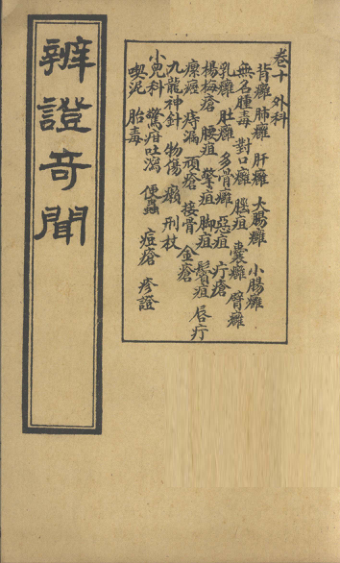 辨證奇聞
卷十 外科
背癰 肺癰 肝癰 大腸癰 小腸癰
無名腫毒 對口癰 腦疽 囊癰 臂癰
乳癰 肚癰 多骨癰 惡疽 疔瘡
楊梅瘡 腰疽 擎疽 脚疽 鬢疽 唇疔
瘰癧 痔漏 頑瘡 接骨 金瘡
九龍神針 物傷 癩 刑杖
小兒科 驚疳吐瀉 便蟲 痘瘡 疹證
喫泥 胎毒